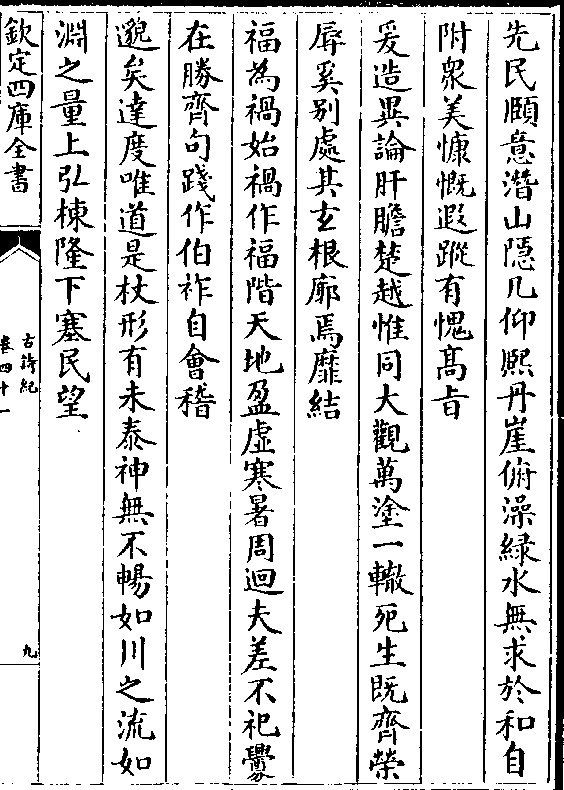 先民頤意潛山隱几仰熙丹崖俯澡緑水無求於和自
附衆美慷慨遐蹤有愧髙㫖
爰造異論肝膽楚越惟同大觀萬塗一轍死生既齊榮
辱奚别處其玄根廓焉靡結
福為禍始禍作福階天地盈虛寒暑周迴夫差不祀釁
在勝齊句踐作伯祚自會稽
邈矣達度唯道是杖形有未泰神無不暢如川之流如
淵之量上弘棟隆下塞民望
欽定四庫全書
古詩紀
卷四十一
九